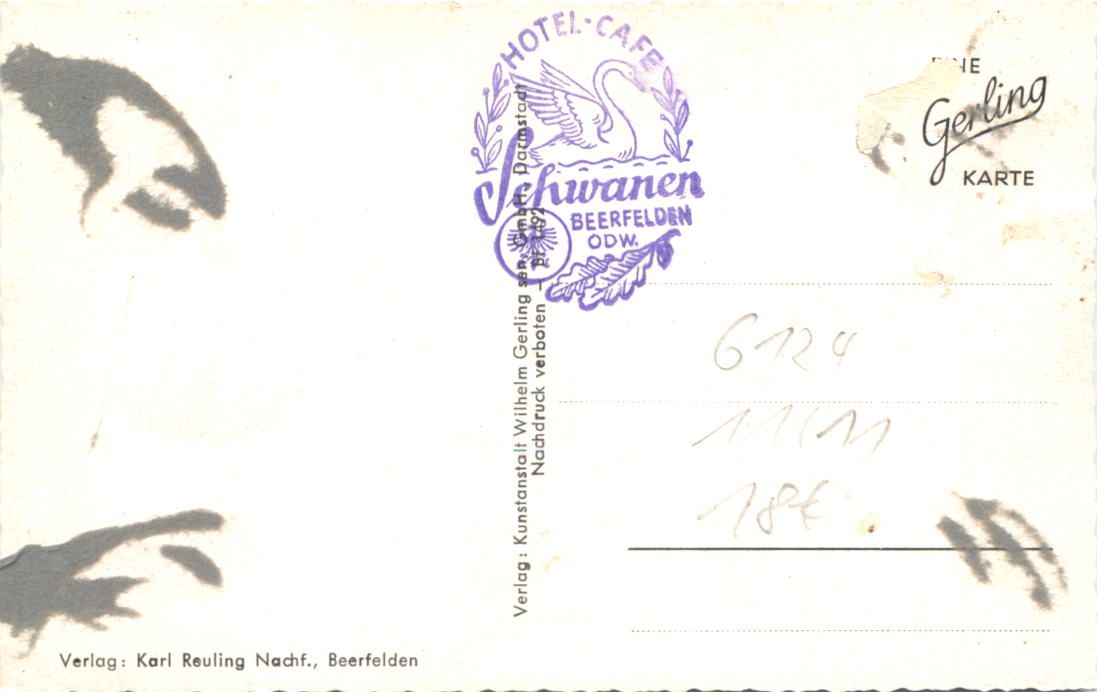 HOTEL-CAFE
Schwanen
BEERFELDEN
ODW.
EINE
Gerling
KARTE
Verlag: Kunstanstalt Wilhelm Gerling sen. GmbH., Darmstadt
Nachdruck verboten – BF 1492
6124
11/11
18€
Verlag: Karl Reuling Nachf., Beerfelden